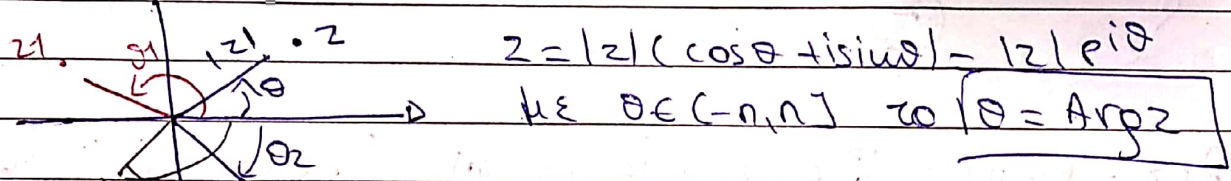 z1 θ1 |z| . z z = |z| (cosθ + isinθ) = |z| e^{iθ}
θ με θ ∈ (-π, π] το θ = Arg z
θ2